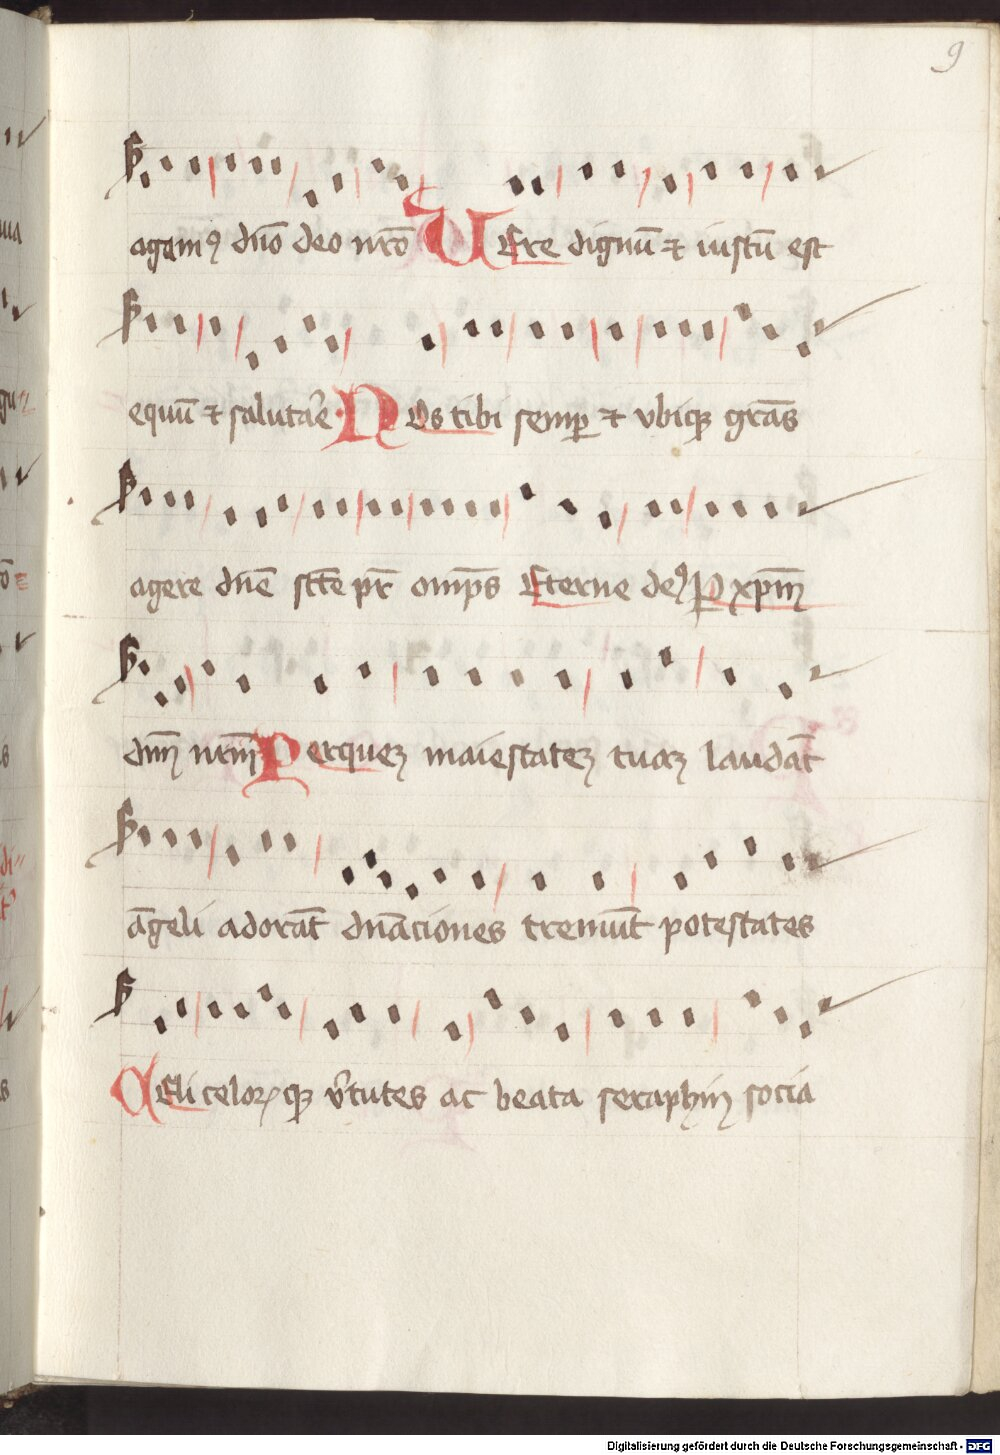 9
agamꝯ dn̄o deo nr̄o VEre dignū ⁊ iustū est
equū ⁊ salutar̄e NOs tibi semꝑ ⁊ vbiqꝫ grās
agere dn̄e sc̄te pr̄ omp̄s Eterne deꝰ P xp̄m
dn̄m nr̄m Per quem maiestatem tuam laudāt
āgeli adorāt dn̄aciones tremūt potestates
CEli celorꝝqꝫ v̄tutes ac beata seraphin socia
Digitalisierung gefördert durch die Deutsche Forschungsgemeinschaft - DFG